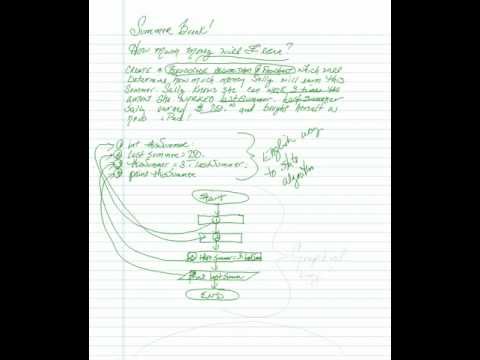 Summer Break!
How much money will I earn?
CREATE A Pseudocode description & flowchart which will
Determine how much money Sally will earn this
Summer. Sally knows she can work 3 times the
amount she worked last summer. Last summer
Sally earned $ 250.00 and bought herself a
new iPad!
① int thisSummer
② lastSummer = 250
③ thisSummer = 3 * lastSummer
④ print thisSummer
English way
to state
algorithm
Start
①
②
③ thisSummer = 3 *
④ print lastSummer
END
Graphical
way